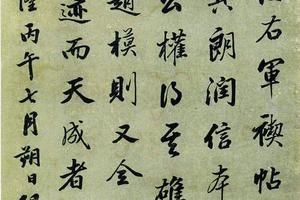 右軍禊帖
真朗潤信本
公權得其雄
趙模則又全
迹而天成者
陸丙午七月朔日